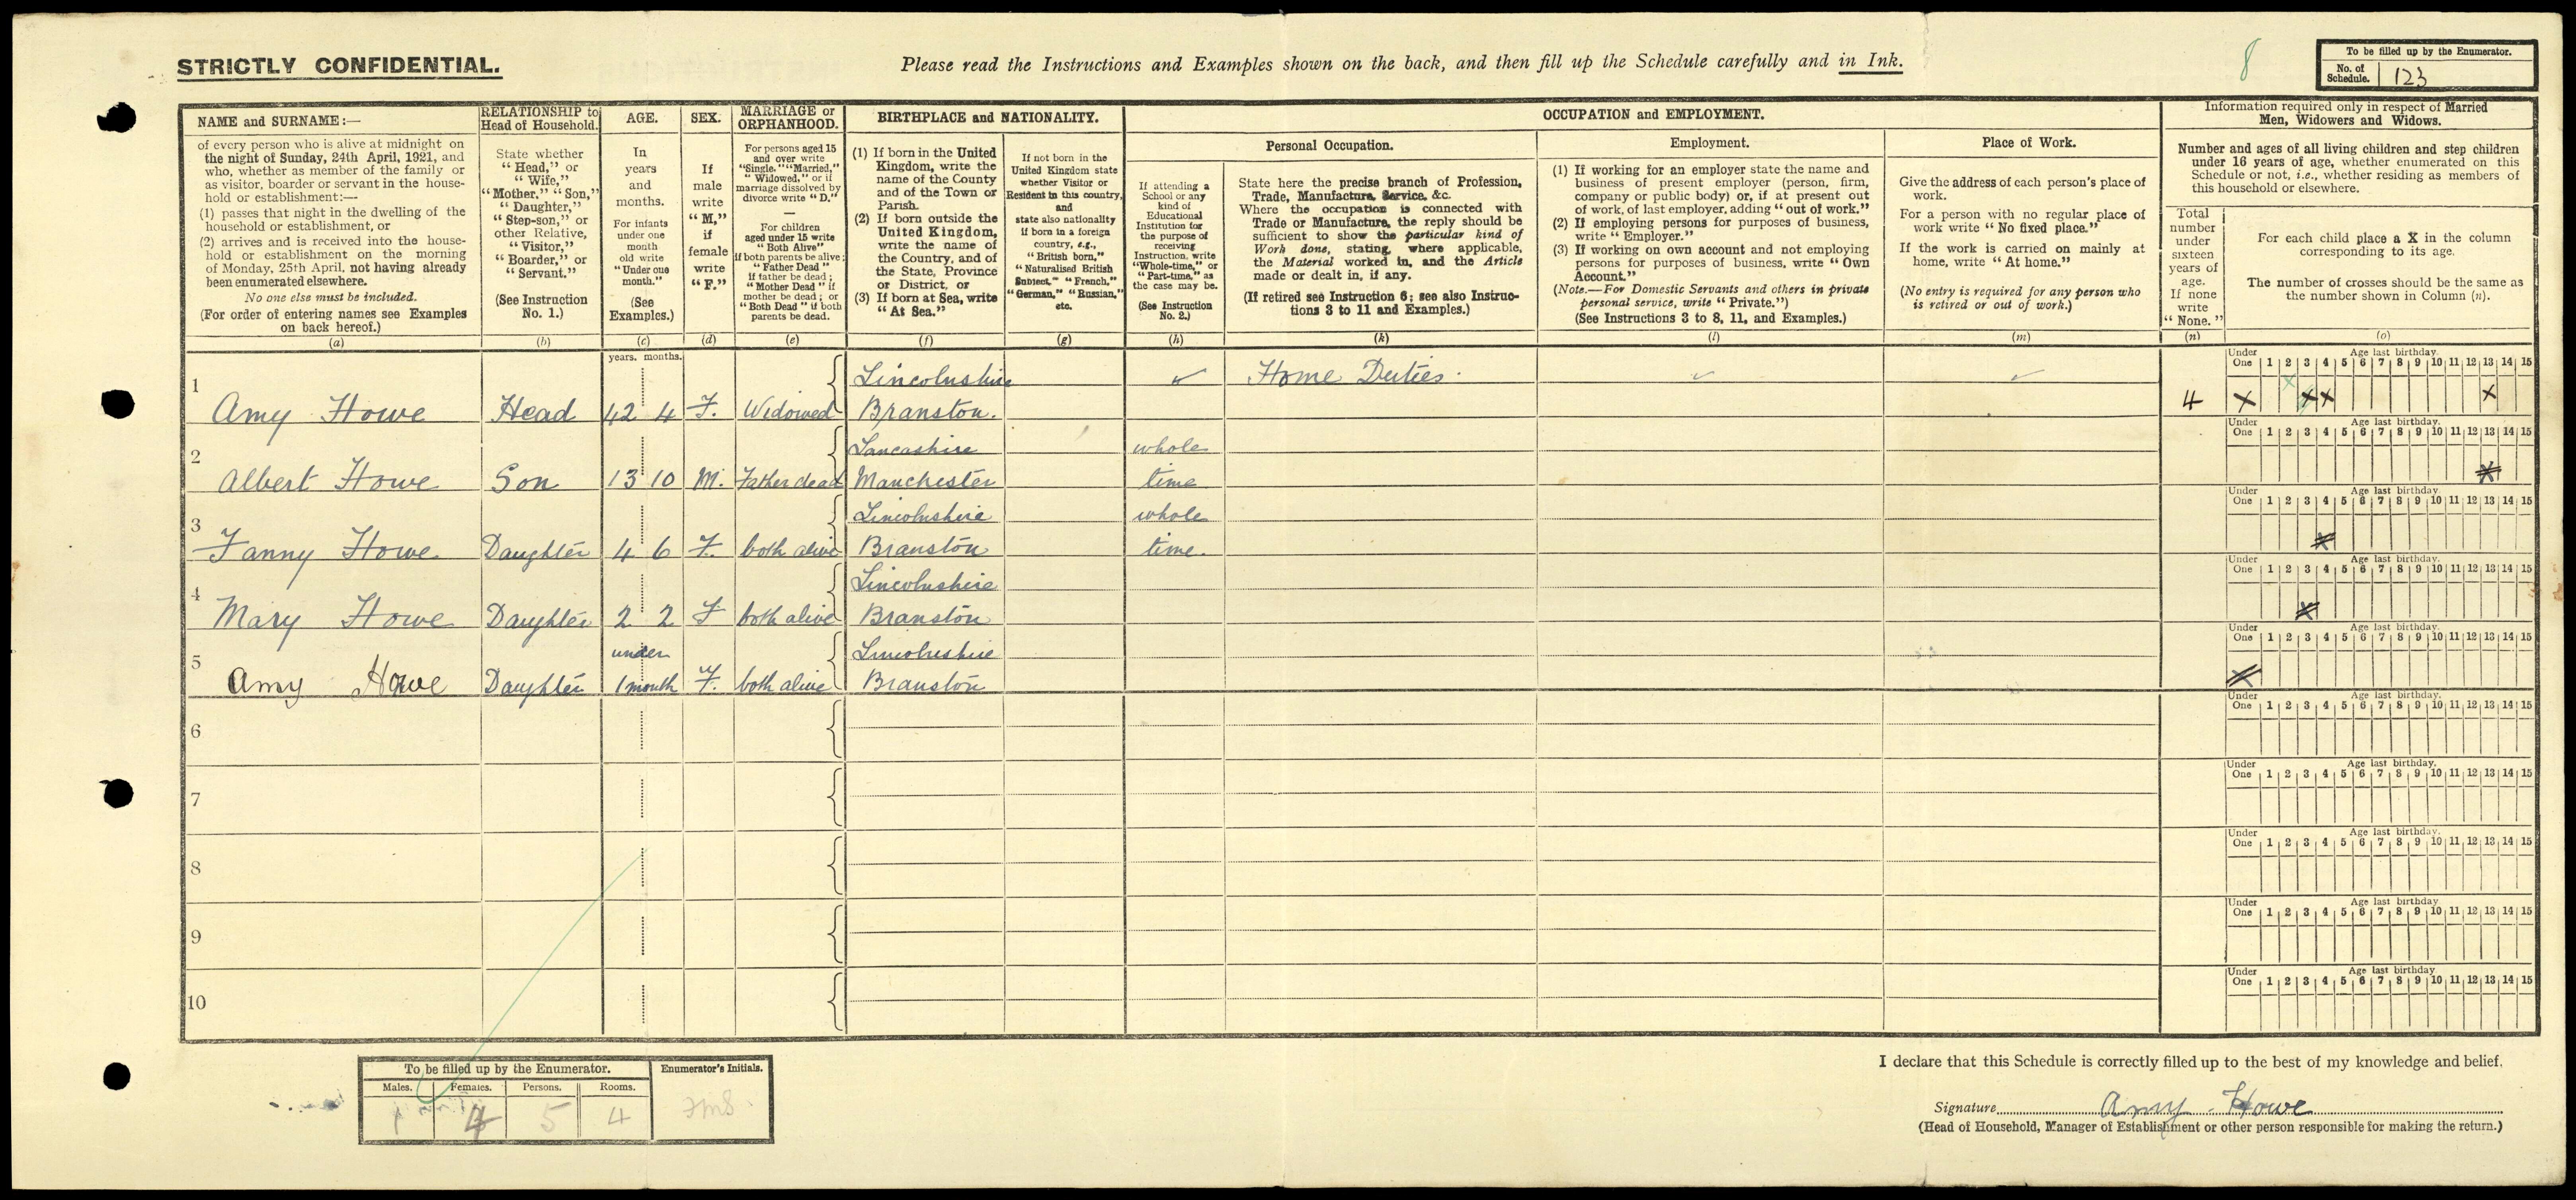 STRICTLY CONFIDENTIAL.
Please read the Instructions and Examples shown on the back, and then fill up the Schedule carefully and in Ink.
8
To be filled up by the Enumerator.
No. of Schedule. 123
NAME and SURNAME:—
of every person who is alive at midnight on
the night of Sunday, 24th April, 1921, and
who, whether as member of the family or
as visitor, boarder or servant in the house-
hold or establishment:—
(1) passes that night in the dwelling of the
household or establishment, or
(2) arrives and is received into the house-
hold or establishment on the morning
of Monday, 25th April, not having already
been enumerated elsewhere.
No one else must be included.
(For order of entering names see Examples
on back hereof.)
(a)
RELATIONSHIP to
Head of Household.
State whether
"Head," or
"Wife,"
"Mother," "Son,"
"Daughter,"
"Step-son," or
other Relative,
"Visitor,"
"Boarder," or
"Servant."
(See Instruction
No. 1.)
(b)
AGE.
In
years
and
months.
For infants
under one
month
old write
"Under one
month."
(See
Examples.)
(c)
SEX.
If
male
write
"M,"
if
female
write
"F."
(d)
MARRIAGE or
ORPHANHOOD.
For persons aged 15
and over write
"Single," "Married,"
"Widowed," or if
marriage dissolved by
divorce write "D."
—
For children
aged under 15 write
"Both Alive"
if both parents be alive;
"Father Dead"
if father be dead;
"Mother Dead" if
mother be dead; or
"Both Dead" if both
parents be dead.
(e)
BIRTHPLACE and NATIONALITY.
(1) If born in the United
Kingdom, write the
name of the County
and of the Town or
Parish.
(2) If born outside the
United Kingdom,
write the name of
the Country, and of
the State, Province
or District, or
(3) If born at Sea, write
"At Sea."
(f)
If not born in the
United Kingdom state
whether Visitor or
Resident in this country,
and
state also nationality
if born in a foreign
country, e.g.,
"British born,"
"Naturalised British
Subject," "French,"
"German," "Russian,"
etc.
(g)
OCCUPATION and EMPLOYMENT.
Personal Occupation.
If attending a
School or any
kind of
Educational
Institution for
the purpose of
receiving
Instruction, write
"Whole-time," or
"Part-time," as
the case may be.
(See Instruction
No. 2.)
(h)
State here the precise branch of Profession,
Trade, Manufacture, Service, &c.
Where the occupation is connected with
Trade or Manufacture, the reply should be
sufficient to show the particular kind of
Work done, stating, where applicable,
the Material worked in, and the Article
made or dealt in, if any.
(If retired see Instruction 6; see also Instruc-
tions 3 to 11 and Examples.)
(k)
Employment.
(1) If working for an employer state the name and
business of present employer (person, firm,
company or public body) or, if at present out
of work, of last employer, adding "out of work."
(2) If employing persons for purposes of business,
write "Employer."
(3) If working on own account and not employing
persons for purposes of business, write "Own
Account."
(Note.—For Domestic Servants and others in private
personal service, write "Private.")
(See Instructions 3 to 8, 11, and Examples.)
(l)
Place of Work.
Give the address of each person's place of
work.
For a person with no regular place of
work write "No fixed place."
If the work is carried on mainly at
home, write "At home."
(No entry is required for any person who
is retired or out of work.)
(m)
Information required only in respect of Married
Men, Widowers and Widows.
Number and ages of all living children and step children
under 16 years of age, whether enumerated on this
Schedule or not, i.e., whether residing as members of
this household or elsewhere.
Total
number
under
sixteen
years of
age.
If none
write
"None."
(n)
For each child place a X in the column
corresponding to its age.
The number of crosses should be the same as
the number shown in Column (n).
(o)
years. months.
Under One Age last birthday. 1 2 3 4 5 6 7 8 9 10 11 12 13 14 15
1 Amy Howe Head 42 4 F. Widowed Lincolnshire Branston. ✓ Home Duties. ✓ ✓ 4 X X X X X
Under One Age last birthday. 1 2 3 4 5 6 7 8 9 10 11 12 13 14 15
2 Albert Howe Son 13 10 M. Father dead Lancashire Manchester whole time X
Under One Age last birthday. 1 2 3 4 5 6 7 8 9 10 11 12 13 14 15
3 Fanny Howe Daughter 4 6 F. both alive Lincolnshire Branston whole time. X
Under One Age last birthday. 1 2 3 4 5 6 7 8 9 10 11 12 13 14 15
4 Mary Howe Daughter 2 2 F both alive Lincolnshire Branston X
Under One Age last birthday. 1 2 3 4 5 6 7 8 9 10 11 12 13 14 15
5 Amy Howe Daughter under 1 month F. both alive Lincolnshire Branston X
Under One Age last birthday. 1 2 3 4 5 6 7 8 9 10 11 12 13 14 15
6
Under One Age last birthday. 1 2 3 4 5 6 7 8 9 10 11 12 13 14 15
7
Under One Age last birthday. 1 2 3 4 5 6 7 8 9 10 11 12 13 14 15
8
Under One Age last birthday. 1 2 3 4 5 6 7 8 9 10 11 12 13 14 15
9
Under One Age last birthday. 1 2 3 4 5 6 7 8 9 10 11 12 13 14 15
10
To be filled up by the Enumerator. Enumerator's Initials.
Males. Females. Persons. Rooms.
1 4 5 4
I declare that this Schedule is correctly filled up to the best of my knowledge and belief.
Signature Amy Howe
(Head of Household, Manager of Establishment or other person responsible for making the return.)